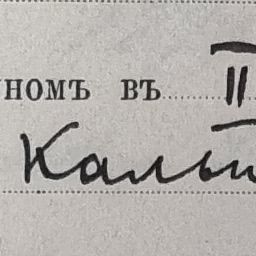 номъ въ II
Кальи